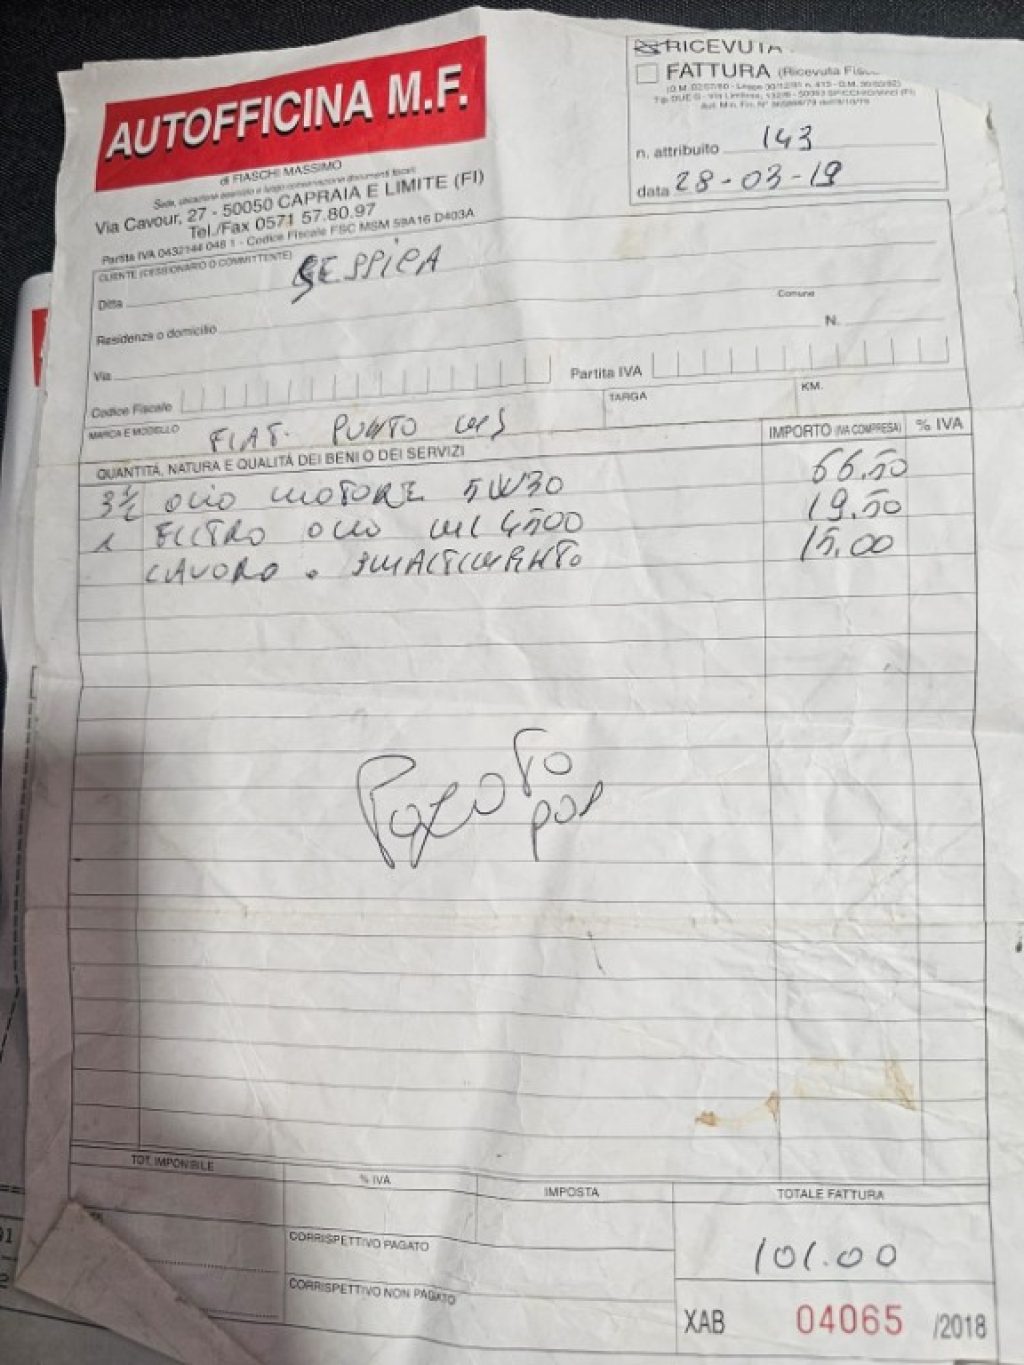 AUTOFFICINA M.F.
di FIASCHI MASSIMO
Via Cavour, 27 - 50050 CAPRAIA E LIMITE (FI)
Tel./Fax 0571 57.80.97
Partita IVA 0432144 048 1 - Codice Fiscale FSC MSM 59A16 D403A
RICEVUTA
FATTURA (Ricevuta
n. attribuito 143
data 28-03-19
CLIENTE (CESSIONARIO O COMMITTENTE)
Ditta
Residenza o domicilio
Comune
Via
N.
Codice Fiscale
Partita IVA
MARCA E MODELLO FIAT PUNTO
TARGA
KM.
QUANTITÀ, NATURA E QUALITÀ DEI BENI O DEI SERVIZI
IMPORTO (IVA COMPRESA)
% IVA
3 1/2 OLIO MOTORE 5W30 66.50
1 FILTRO OLIO 4500 19.50
LAVORO . SMALTIMENTO 15,00
pos
TOT. IMPONIBILE
% IVA
IMPOSTA
TOTALE FATTURA
CORRISPETTIVO PAGATO
101.00
CORRISPETTIVO NON PAGATO
XAB 04065 /2018